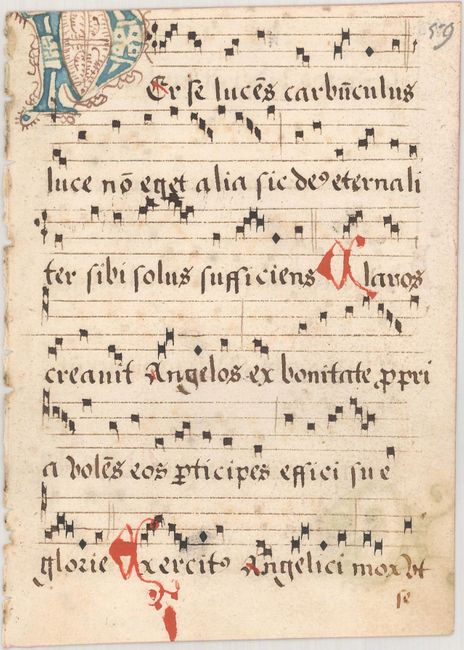 59
PEr se lucēs carbūculus
luce nō eget alia sic deꝰ eternali
ter sibi solus sufficiens Claros
creavit Angelos ex bonitate ꝓpri
a volēs eos ꝑticipes effici sue
glorie Exercitꝰ Angelici mox ut
se